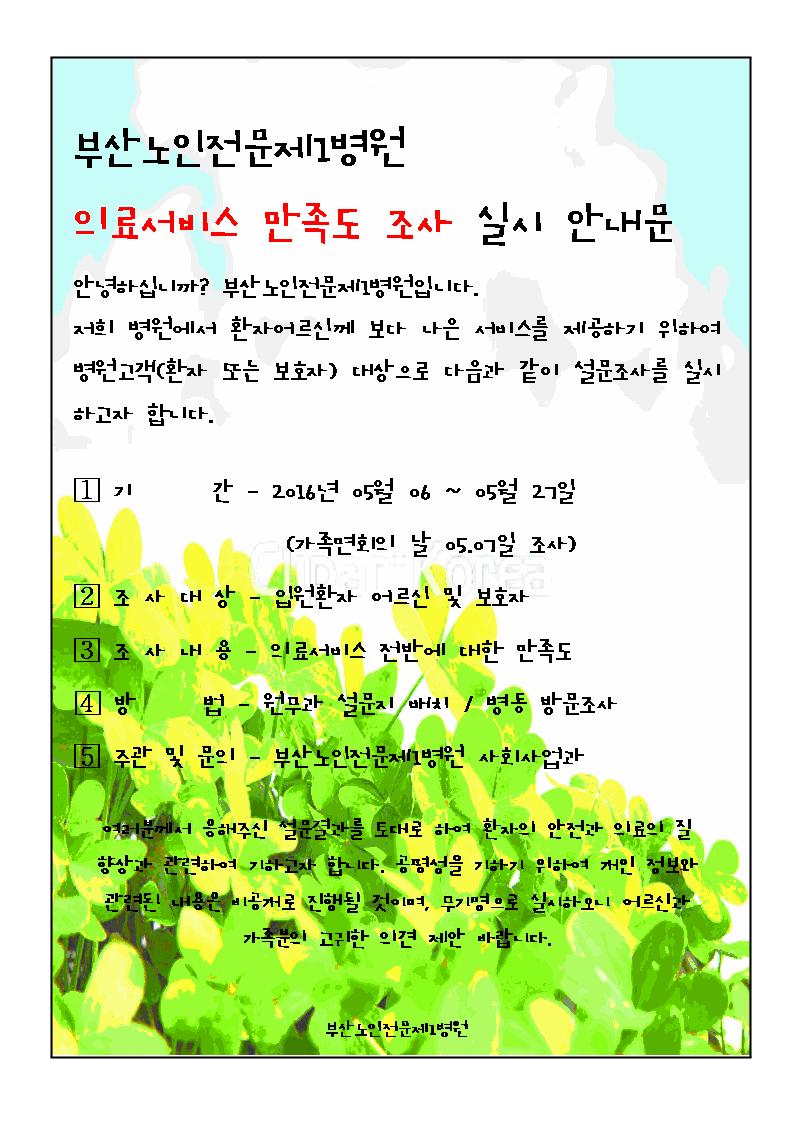 부산노인전문제1병원
의료서비스 만족도 조사 실시 안내문
안녕하십니까? 부산노인전문제1병원입니다.
저희 병원에서 환자어르신께 보다 나은 서비스를 제공하기 위하여
병원고객(환자 또는 보호자) 대상으로 다음과 같이 설문조사를 실시
하고자 합니다.
1 기 간 - 2016년 05월 06 ~ 05월 27일
(가족면회의 날 05.07일 조사)
2 조 사 대 상 - 입원환자 어르신 및 보호자
3 조 사 내 용 - 의료서비스 전반에 대한 만족도
4 방 법 - 원무과 설문지 배치 / 병동 방문조사
5 주관 및 문의 - 부산노인전문제1병원 사회사업과
여러분께서 응해주신 설문결과를 토대로 하여 환자의 안전과 의료의 질
향상과 관련하여 기하고자 합니다. 공평성을 기하기 위하여 개인 정보와
관련된 내용은 비공개로 진행될 것이며, 무기명으로 실시하오니 어르신과
가족분의 고귀한 의견 제안 바랍니다.
부산노인전문제1병원